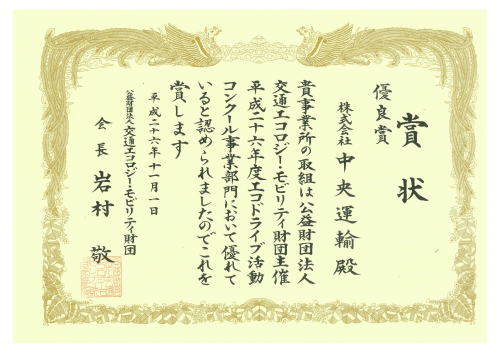 賞状
優良賞
株式会社 中央運輸殿
貴事業所の取組は公益財団法人
交通エコロジー・モビリティ財団主催
平成二十六年度エコドライブ活動
コンクール事業部門において優れて
いると認められましたのでこれを
賞します
平成二十六年十一月一日
公益財団法人交通エコロジー・モビリティ財団
会長 岩村 敬